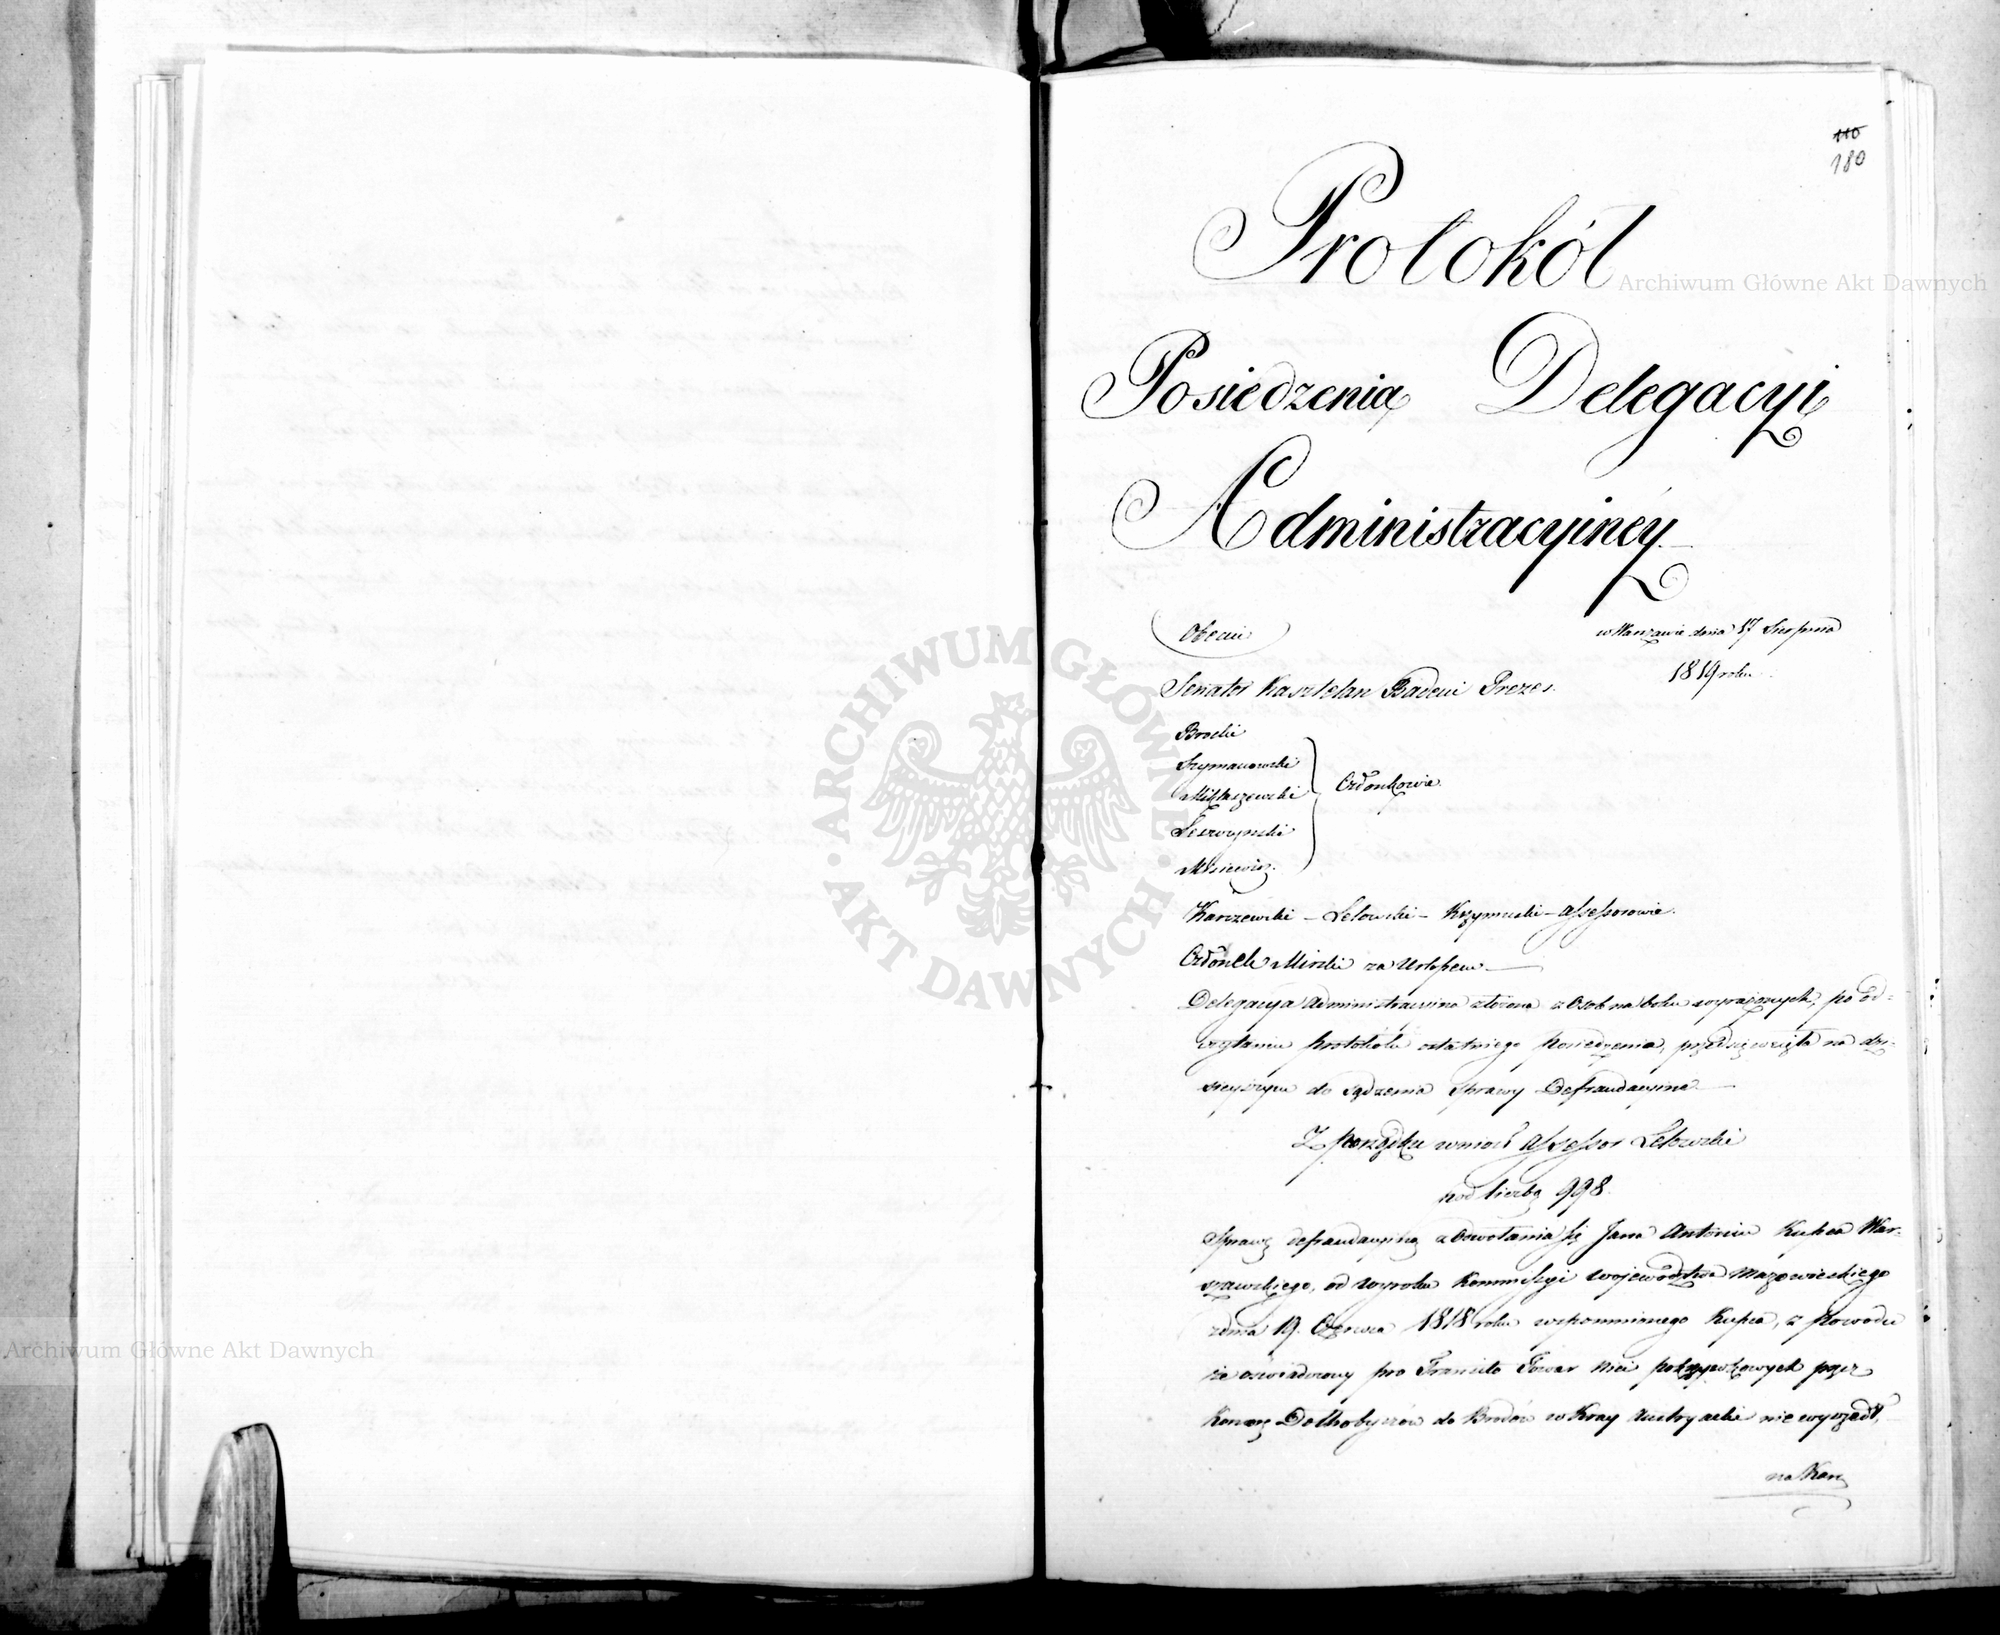 110
180
Protokół
Posiedzenia Delegacyi
Administracyiney
Obecni
w Warszawie dnia 17 Sierpnia
1819 roku
Senator Kasztelan Badeni Prezes.
Brocki
Szymanowski
Miklaszewski
Członkowie.
Karczewski – Lelowski – Krzymuski – Assessorowie.
Członek Mirski za Urlopem
Delegacya Administracyina złożona z Osób na boku wyrażonych, po od=
czytaniu Protokółu ostatniego Posiedzenia, przedsięwzięła na dzi=
sieyszym do sądzenia sprawy Defraudacyine
Z porządku wniósł Assessor Lelowski
pod liczbą 998.
Sprawę defraudacyiną z Odwołania Się Jana Antoniu Kupca War=
szawskiego, od wyroku Kommissyi Woiewództwa Mazowieckiego
z dnia 19. Czerwca 1818 roku wspomnionego Kupca, z Powodu
że oświadczony pro Transito Towar Nici przez
Komorę Dołhobyczów do Brodów w Kray Austryacki nie wyszedł,
na Karę
ARCHIWUM GŁÓWNE
AKT DAWNYCH
Archiwum Główne Akt Dawnych
Archiwum Główne Akt Dawnych